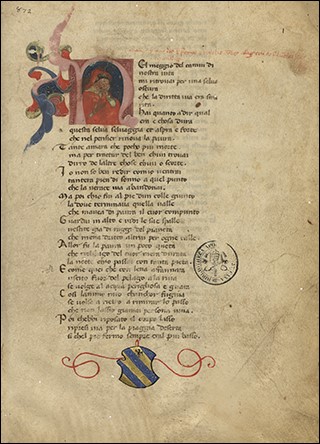 El meçço del camin di
nostra uita
mi ritrouai per una selua
oscura
che la diritta uia era smar
rita
Hai quanto a dir qual
era e chosa dura
questa selua seluaggia et aspra e forte
che nel pensier rinoua la paura
Tante amara che pocho piu morte
ma per tractar del ben chiui trouai
diro de laltre chose chui o scorte
I o non so ben reder comio uentrai
tantera pien di sonno a quel punto
che la uerace uia abandonai
Ma poi chio fui al pie dun colle giunto
la doue terminaua quella ualle
che mauea di paura il cuor compunto
Guardai in alto e uidi le sue spalle
uestite gia di raggi del pianeta
che mena dritto altrui per ogne calle
Allor fu la paura un poco queta
che nel lago del cor mera durata
la nocte chio passai con tanta pieta
E come quei che con lena affannata
uscito fuor del pelago a la riua
se uolge al acqua perigliosa e guata
Cosi lanimo mio chancor fuggiua
se uolse a rietro a rimirar lo passo
che non lasso giamai persona uiua
Poi cheibbi riposato el corpo lasso
ripresi uia per la piaggia diserta
si chel pie fermo sempre era il piu basso